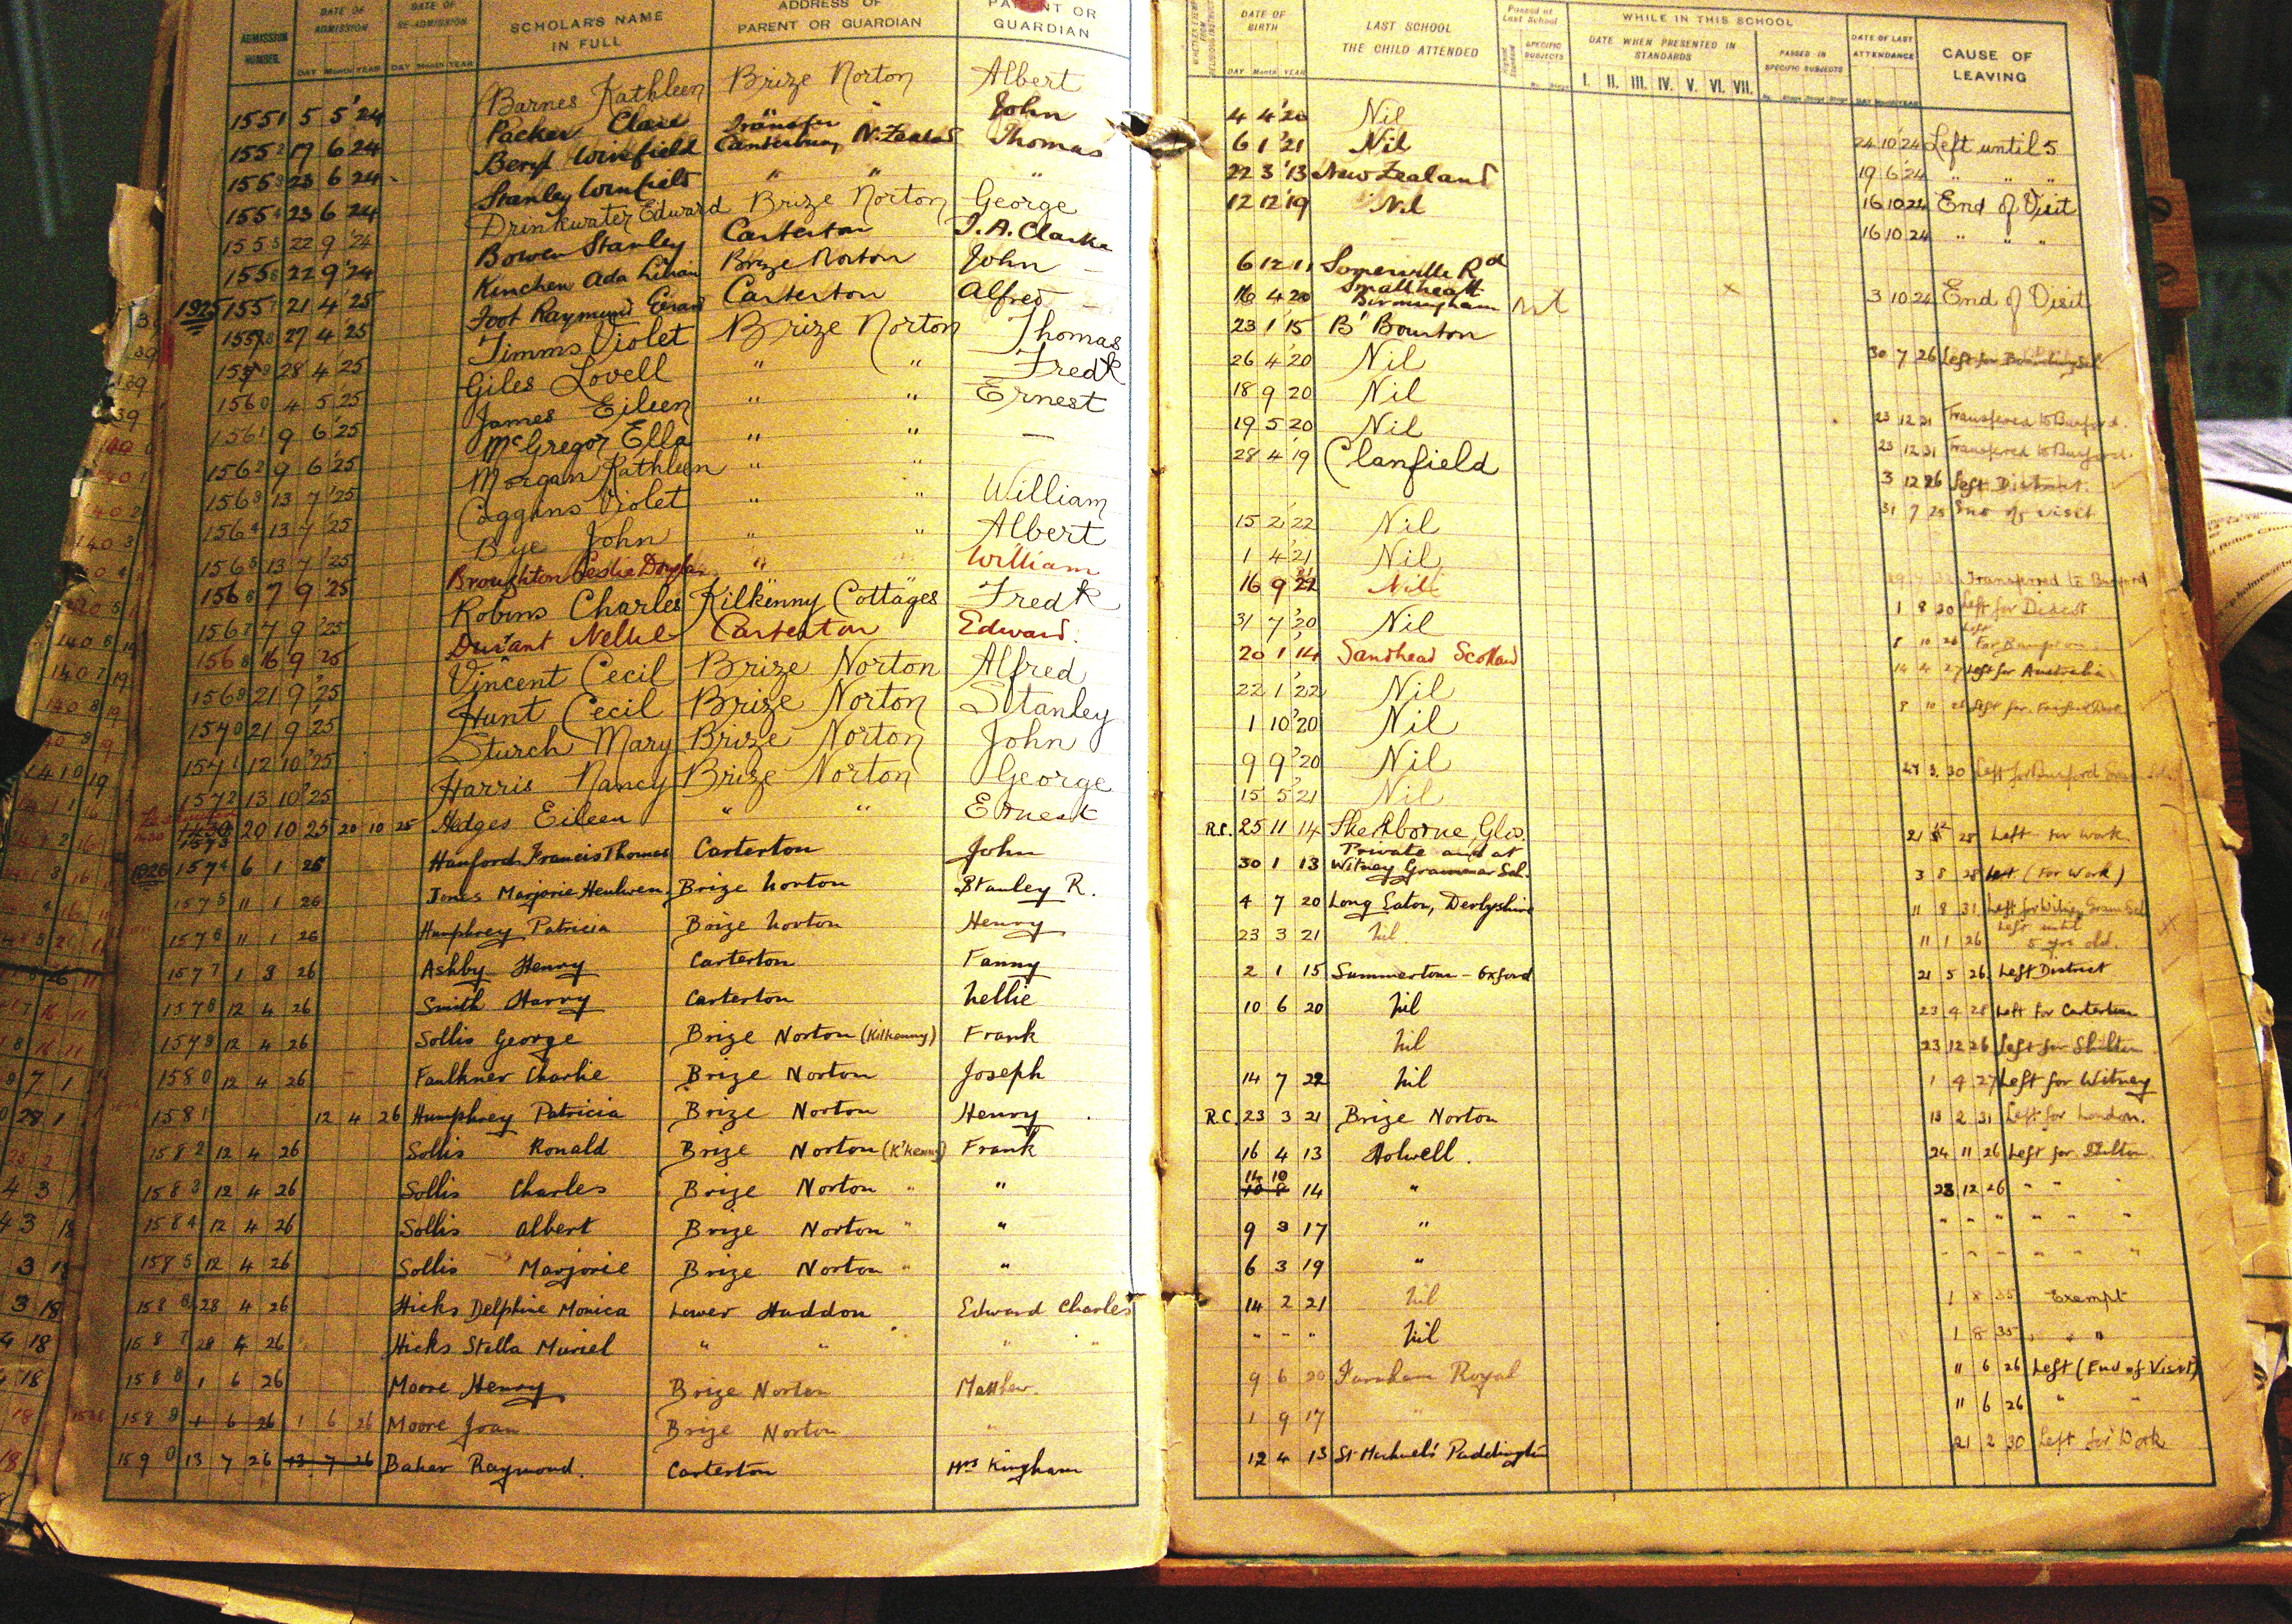 ADMISSION NUMBER. DATE OF ADMISSION DATE OF RE-ADMISSION SCHOLAR'S NAME IN FULL ADDRESS OF PARENT OR GUARDIAN PARENT OR GUARDIAN
DAY Month YEAR DAY Month YEAR
1551 5 5 '24 Barnes Kathleen Brize Norton Albert
1552 19 6 24 Packer Clare John
1553 23 6 24 Beryl Winfield Canterbury N. Zealand Thomas
1554 23 6 24 Stanley Winfield " " "
1555 22 9 '24 Drinkwater Edward Brize Norton George
1556 22 9 '24 Bowen Stanley Carterton J. A. Clarke
1925 1557 21 4 '25 Kinchen Ada Lilian Brize Norton John
1558 27 4 '25 Foot Raymund Carterton Alfred
1559 28 4 25 Timms Violet Brize Norton Thomas
1560 4 5 '25 Giles Lovell " " Fredk
1561 9 6 '25 James Eileen " " Ernest
1562 9 6 '25 McGregor Ella " " —
1563 13 7 '25 Morgan Kathleen " "
1564 13 7 '25 Coggins Violet " " William
1565 13 7 '25 Bye John " " Albert
1566 7 9 '25 Broughton Leslie " William
1567 7 9 '25 Robins Charles Kilkenny Cottages Fredk
1568 16 9 '25 Durant Nellie Carterton Edward.
1569 21 9 '25 Vincent Cecil Brize Norton Alfred
1570 21 9 '25 Hunt Cecil Brize Norton Stanley
1571 12 10 '25 Sturch Mary Brize Norton John
1572 13 10 '25 Harris Nancy Brize Norton George
1573 20 10 25 20 10 25 Hedges Eileen " " Ernest
1926 1574 6 1 26 Hanford Francis Thomas Carterton John
1575 11 1 26 Jones Marjorie Henlwen Brize Norton Stanley R.
1576 11 1 26 Humphrey Patricia Brize Norton Henry
1577 1 3 26 Ashby Henry Carterton Fanny
1578 12 4 26 Smith Harry Carterton Nellie
1579 12 4 26 Sollis George Brize Norton (Kilkenny) Frank
1580 12 4 26 Faulkner Charlie Brize Norton Joseph
1581 12 4 26 Humphrey Patricia Brize Norton Henry
1582 12 4 26 Sollis Ronald Brize Norton (K'kenny) Frank
1583 12 4 26 Sollis Charles Brize Norton " "
1584 12 4 26 Sollis Albert Brize Norton " "
1585 12 4 26 Sollis Marjorie Brize Norton " "
1586 28 4 26 Hicks Delphine Monica Lower Haddon Edward Charles
1587 28 4 26 Hicks Stella Muriel " " " " "
1588 1 6 26 Moore Henry Brize Norton Matthew.
1589 1 6 26 1 6 26 Moore Joan Brize Norton "
1590 13 7 26 13 7 26 Baker Raymond. Carterton Mrs Kingham
DATE OF BIRTH LAST SCHOOL THE CHILD ATTENDED Passed at Last School SPECIFIC SUBJECTS WHILE IN THIS SCHOOL DATE WHEN PRESENTED IN STANDARDS PASSED IN SPECIFIC SUBJECTS DATE OF LAST ATTENDANCE CAUSE OF LEAVING
DAY Month YEAR I. II. III. IV. V. VI. VII.
4 4 '20 Nil
6 1 '21 Nil 24 10 '24 Left until 5
22 3 '13 New Zealand 19 6 '24 " " "
12 12 '19 Nil 16 10 24 End of Visit
16 10 24 " " "
6 12 11 Somerville Rd
Smallheath
16 4 20 Birmingham 3 10 24 End of Visit
23 1 '15 B' Bourton
26 4 '20 Nil 30 7 26
18 9 20 Nil
19 5 20 Nil 23 12 31 Transfered to Burford.
28 4 '19 Clanfield 23 12 31 Transfered to Burford.
3 12 26 Left District.
15 2 '22 Nil 31 7 25 End of visit
1 4 '21 Nil
16 9 Nil Transferred to Burford
31 7 '20 Nil Left for
20 1 '14 Sandhead Scotland 8 10 26 Left For Bampton
22 1 '22 Nil 14 4 27 Left for Australia
1 10 '20 Nil 8 10 26 Left for
9 9 '20 Nil
15 5 '21 Nil 27 3 30 Left for Burford
R.C. 25 11 14 Sherborne, Glos.
30 1 13 Private and at Witney Grammar Sch. 21 28 Left for work.
4 7 20 Long Eaton, Derbyshire 3 8 28 Left (For Work)
23 3 21 Nil 11 8 31 Left for Witney Gram Sch
2 1 15 Summertown - Oxford 11 1 26 Left until 5 yrs old.
10 6 20 Nil 21 5 26 Left District
Nil 23 4 28 Left for Carterton
14 7 22 Nil 23 12 26 Left for Shilton
R.C. 23 3 21 Brize Norton 1 4 27 Left for Witney
16 4 13 Holwell. 13 2 31 Left for London.
14 10 14 " 24 11 26 Left for Shilton.
9 3 17 " 23 12 26 " " "
6 3 19 " " " " " " "
14 2 21 Nil " " " " " "
" " " Nil 1 8 35 Exempt
9 6 20 Farnham Royal 1 8 35 " "
1 9 17 " 11 6 26 Left (End of Visit)
12 4 13 St Michael's Paddington 11 6 26 " "
21 2 30 Left for Work